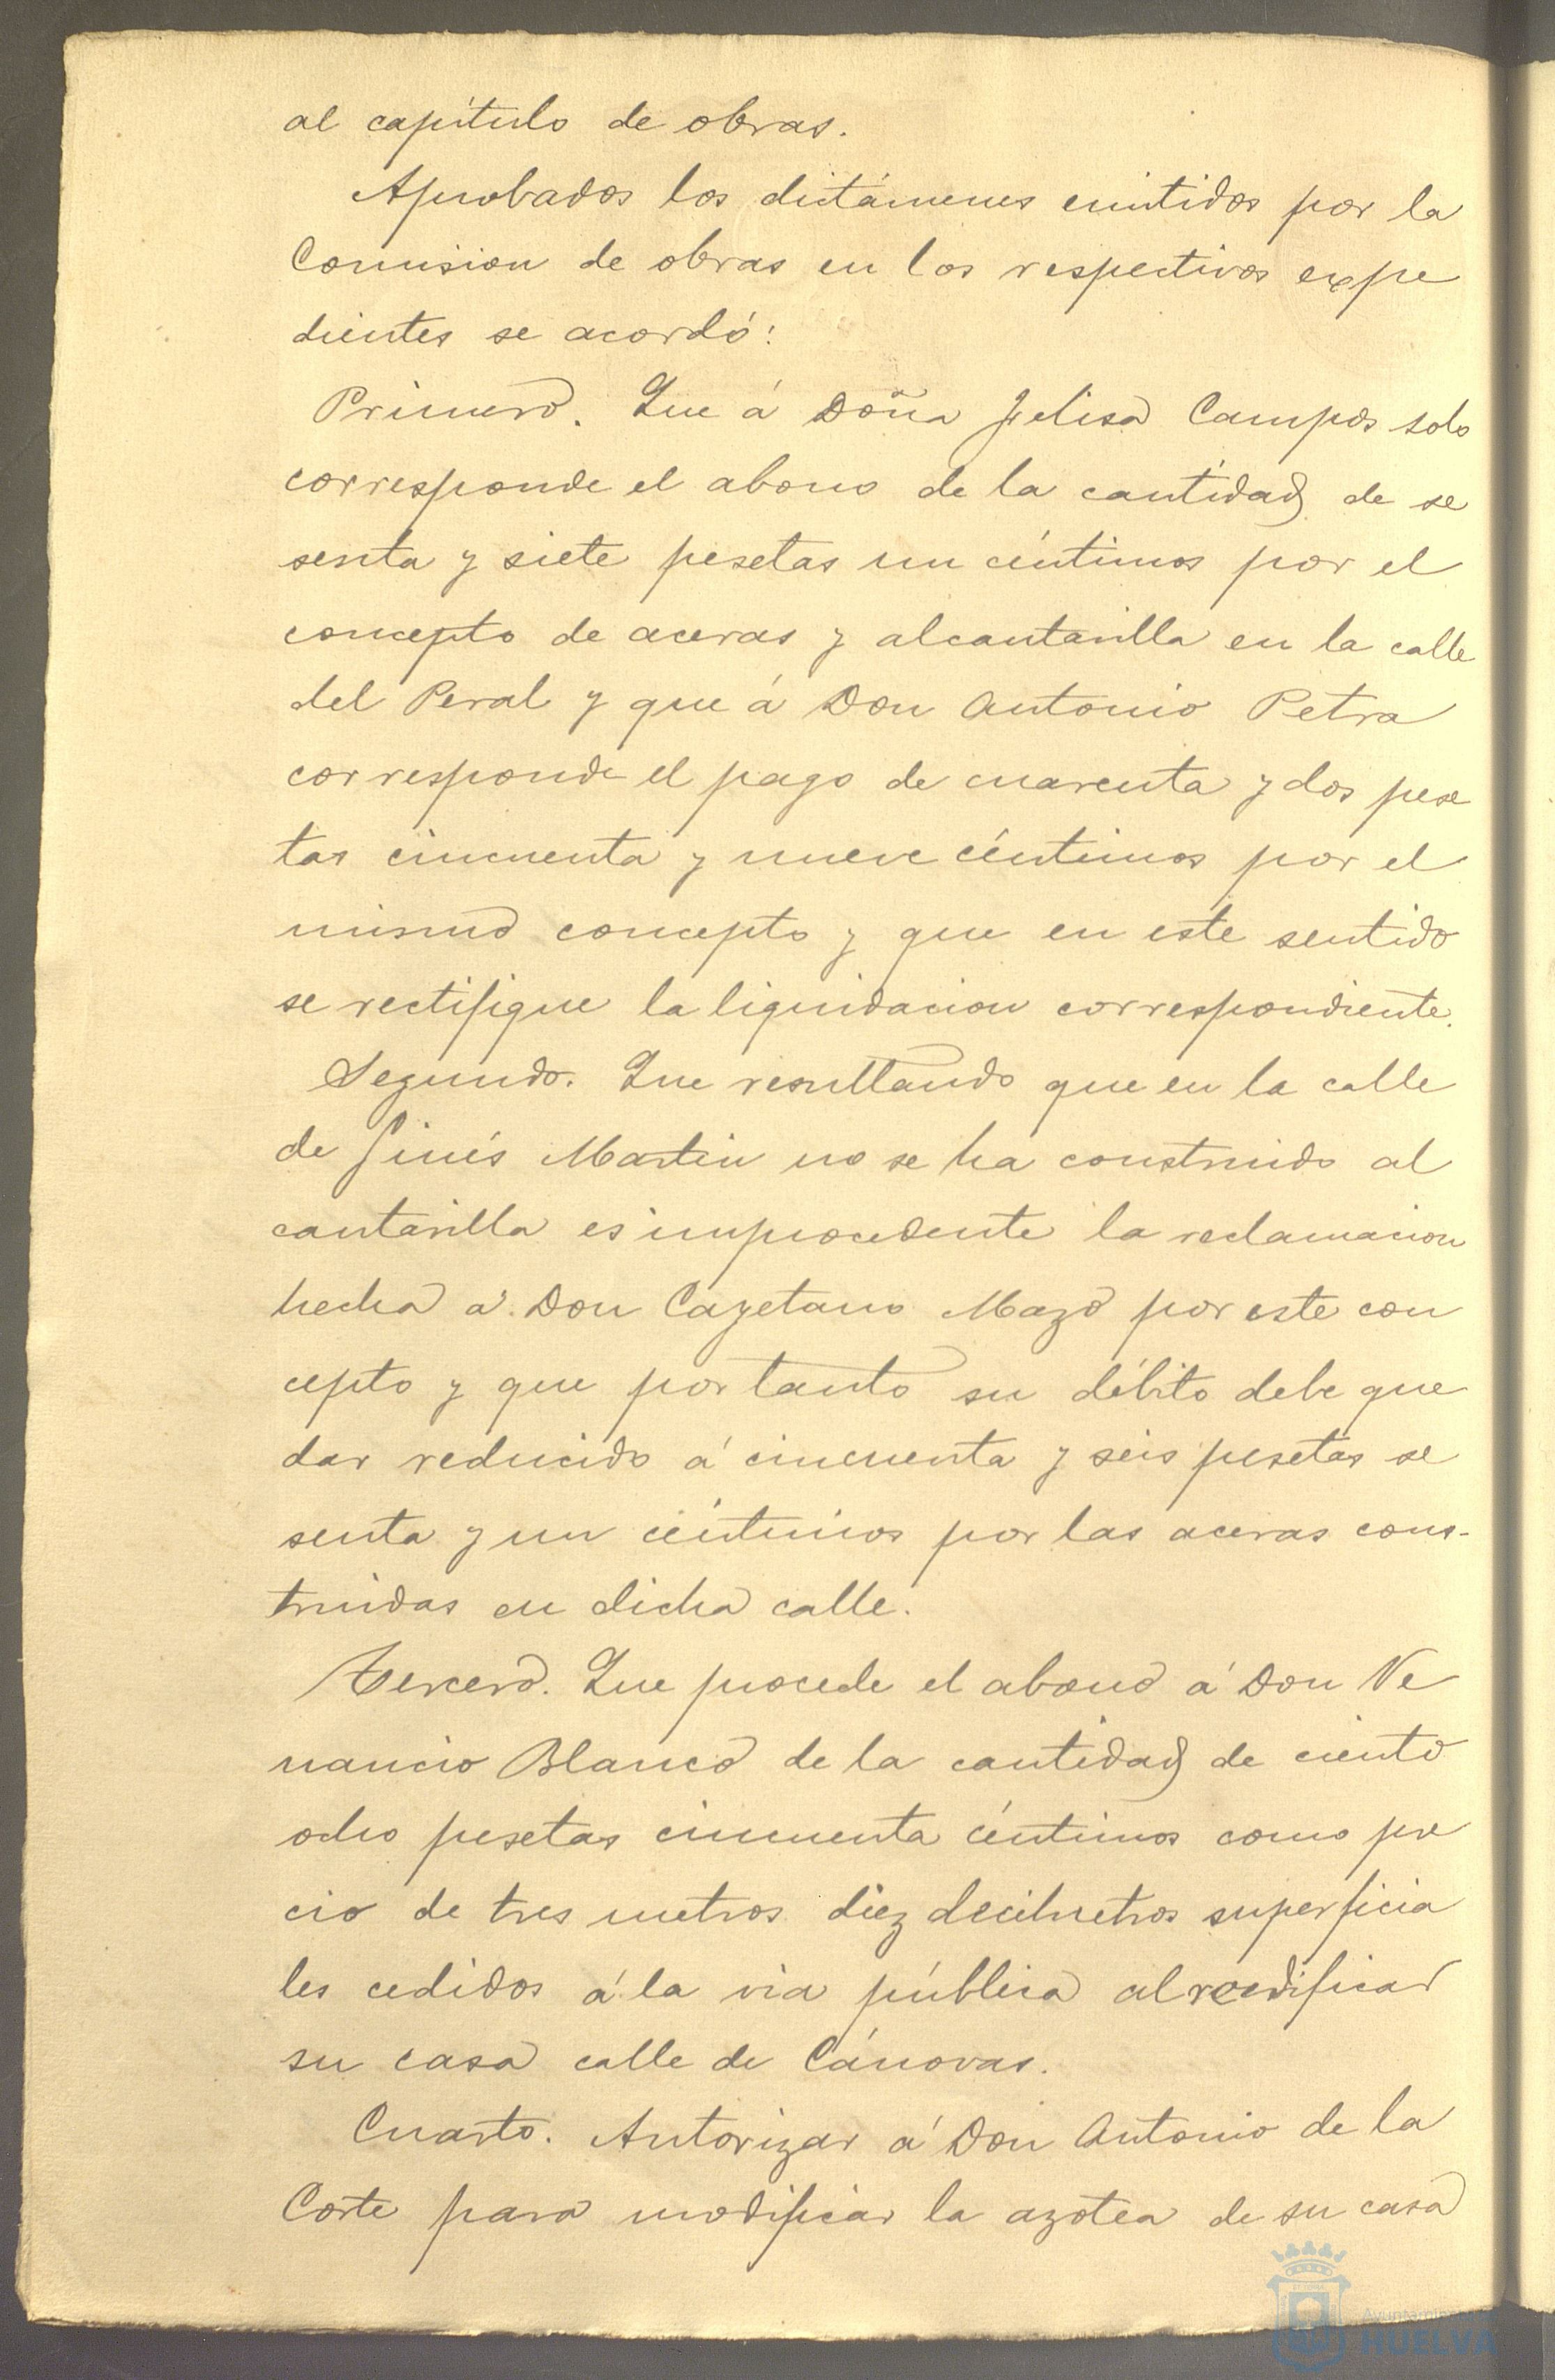 al capítulo de obras.
Aprobados los dictámenes emitidos por la
Comision de obras en los respectivos expe
dientes se acordó:
Primero. Que á Doña Felisa Campos solo
corresponde el abono de la cantidad de se
senta y siete pesetas un céntimos por el
concepto de aceras y alcantarilla en la calle
del Peral y que á Don Antonio Petra
corresponde el pago de cuarenta y dos pese
tas cincuenta y nueve céntimos por el
mismo concepto y que en este sentido
se rectifique la liquidacion correspondiente.
Segundo. Que resultando que en la calle
de Ginés Martin no se ha construido al
cantarilla es improcedente la reclamacion
hecha á Don Cayetano Mazo por este con
cepto y que por tanto su débito debe que
dar reducido á cincuenta y seis pesetas se
senta y un céntimos por las aceras cons-
truidas en dicha calle.
Tercero. Que procede el abono á Don Ve
nancio Blanco de la cantidad de ciento
ocho pesetas cincuenta céntimos como pre
cio de tres metros diez decimetros superficia
les cedidos á la via pública al reedificar
su casa calle de Cánovas.
Cuarto. Autorizar á Don Antonio de la
Corte para modificar la azotea de su casa
Ayuntamiento
HUELVA